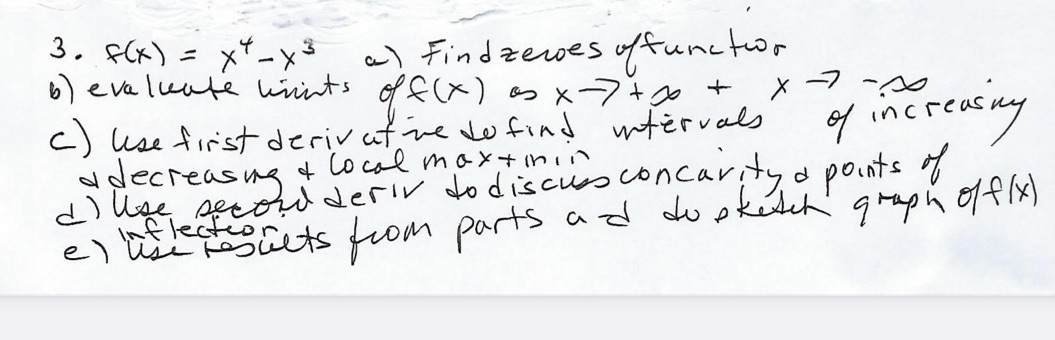 3. f(x) = x⁴-x³ a) Find zeroes of function
b) evaluate limits of f(x) as x→+∞ + x→ -∞
c) Use first derivative to find intervals of increasing
& decreasing & local max + min
d) Use second deriv to discuss concavity & points of
inflection
e) Use results from parts a-d to sketch graph of f(x)